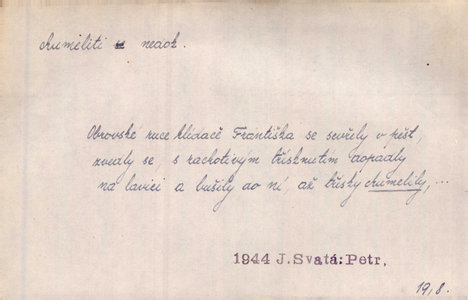 chumeliti se nedok.
Obrovské ruce hlídače Františka se sevřely v pěst,
zvedly se, s rachotivým třísknutím dopadly
na lavici a bušily do ní, až třísky chumelily,...
1944 J.Svatá:Petr,
19,8.